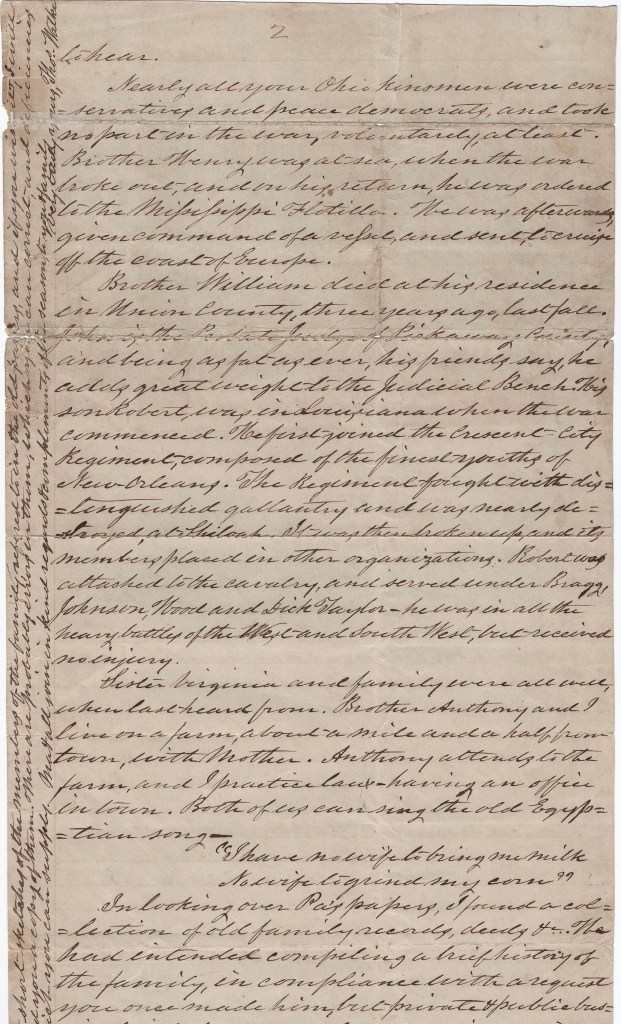 2
to hear.
Nearly all your Ohio kinsmen were con-
-servatives and peace democrats, and took
no part in the war, voluntarily, at least.
Brother Henry was at sea, when the war
broke out, and on his return, he was ordered
to the Missisippi Flotilla. He was afterwards
given command of a vessel, and sent, to cruise
off the coast of Europe.
Brother William died at his residence
in Union County, three years ago, last fall.
John is the Probate Judge of Pickaway County,
and being as fat as ever, his friends say, he
adds great weight to the Judicial Bench. His
son Robert, was in Louisiana when the war
commenced. He first joined the Crescent City
Regiment, composed of the finest youths of
New-Orleans. The Regiment fought with dis-
-tinguished gallantry and was nearly de-
-stroyed, at Shiloah. It was then broken up, and its
members placed in other organizations. Robert was
attached to the cavalry, and served under Bragg,
Johnson, Wood and Dick Taylor - he was in all the
heavy battles of the West and South West, but received
no injury.
Sister Virginia and family were all well,
when last heard from. Brother Anthony and I
live on a farm, about a mile and a half from
town, with Mother. Anthony attends to the
farm, and I practice law - having an office
in town. Both of us can sing the old Egyp-
-tian song -
"I have no wife to bring me milk
No wife to grind my corn"
In looking over Pa's papers, I found a col-
-lection of old family records, deeds &c. He
had intended compiling a brief history of
the family, in compliance with a request
you once made him, but private & public bus-
short sketches of the members of the family, referred to in the deeds, and if you
you a copy of them. There are probably in them, which you can correct - and
which you can supply. Ma & all join in kind regards & compliments of the season to your family
Very truly, yours, Thos.